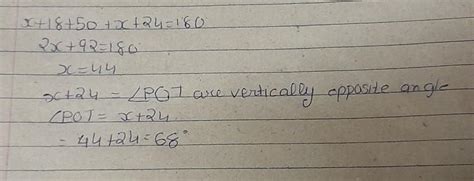 x+18+50+x+24=180
2x+92=180
x=44
x+24 = ∠POT are vertically opposite angle
∠POT = x+24
= 44+24=68°